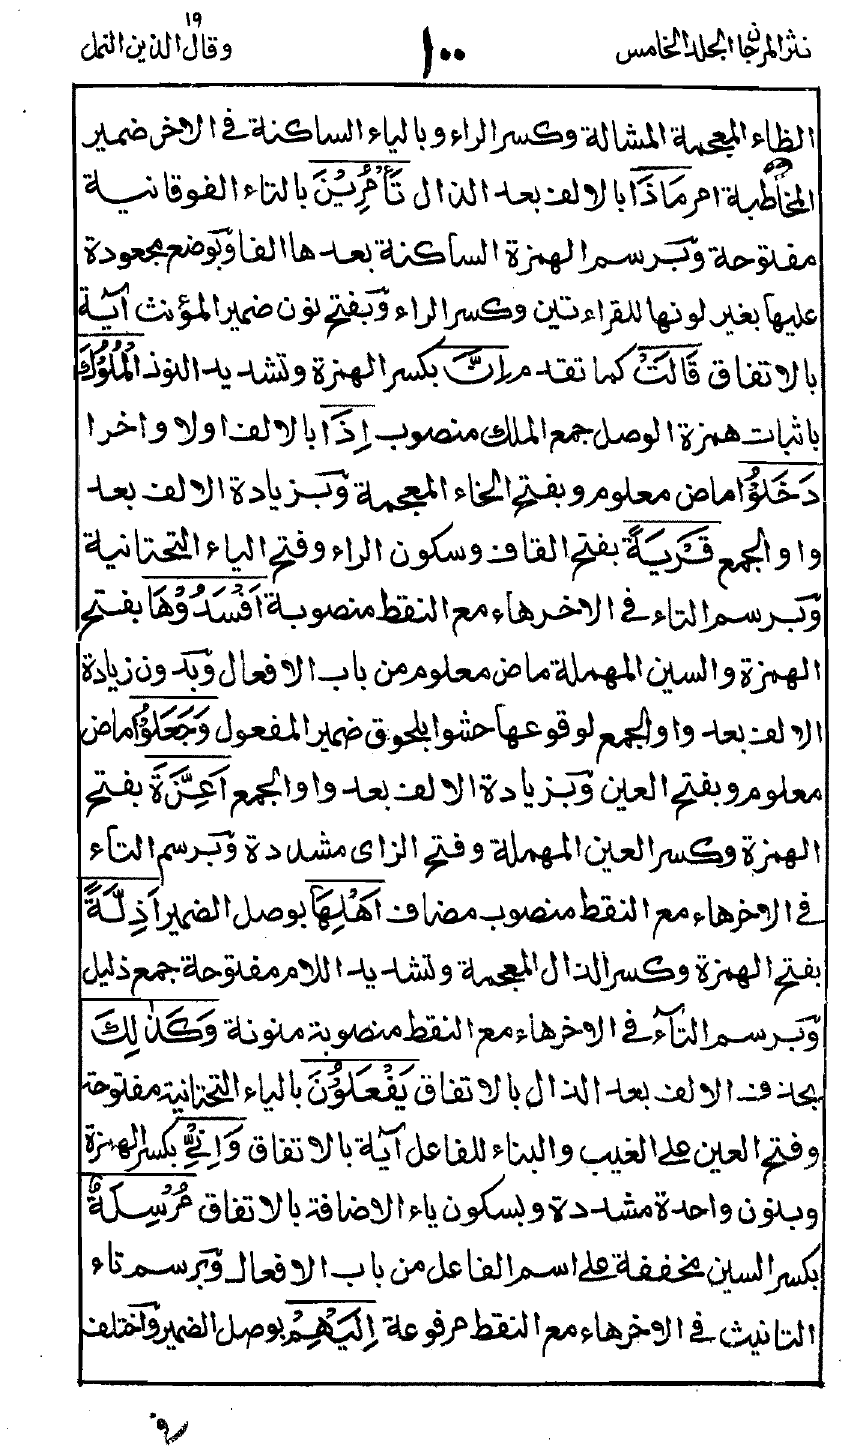 نثر المرجان الجلد الخامس
١٠٠
وقال الذين ١٩ النمل
الظاء المعجمة المشالة وكسر الراء وبالياء الساكنة في الاخر ضمير
المخاطبة امر مَاذَا بالالف بعد الذال تَأْمُرِيْنَ بالتاء الفوقانية
مفتوحة وبرسم الهمزة الساكنة بعدها الفا وبوضع مجعودة
عليها بغير لونها للقراءتين وكسر الراء وبفتح نون ضمير المؤنث آية
بالاتفاق قَالَتْ كما تقدم اِنَّ بكسر الهمزة وتشديد النون الْمُلُوْكَ
باثبات همزة الوصل جمع الملك منصوب اِذَا بالالف اولا واخرا
دَخَلُوْا ماض معلوم وبفتح الخاء المعجمة وبزيادة الالف بعد
واو الجمع قَرْيَةً بفتح القاف وسكون الراء وفتح الياء التحتانية
وبرسم التاء في الاخر هاء مع النقط منصوبة اَفْسَدُوْهَا بفتح
الهمزة والسين المهملة ماض معلوم من باب الافعال وبدون زيادة
الالف بعد واو الجمع لوقوعها حشوا بلحوق ضمير المفعول وَجَعَلُوْا ماض
معلوم وبفتح العين وبزيادة الالف بعد واو الجمع اَعِزَّةَ بفتح
الهمزة وكسر العين المهملة وفتح الزاى مشددة وبرسم التاء
في الاخر هاء مع النقط منصوب مضاف اَهْلِهَا بوصل الضمير اَذِلَّةً
بفتح الهمزة وكسر الذال المعجمة وتشديد اللام مفتوحة جمع ذليل
وبرسم التاء في الاخر هاء مع النقط منصوبة منونة وَكَذٰلِكَ
بحذف الالف بعد الذال بالاتفاق يَفْعَلُوْنَ بالياء التحتانية مفتوحة
وفتح العين على الغيب والبناء للفاعل آية بالاتفاق وَاِنِّيْ بكسر الهمزة
وبنون واحدة مشددة وبسكون ياء الاضافة بالاتفاق مُرْسِلَةٌ
بكسر السين مخففة على اسم الفاعل من باب الافعال وبرسم تاء
التانيث في الاخر هاء مع النقط مرفوعة اِلَيْهِمْ بوصل الضمير واختلف
في